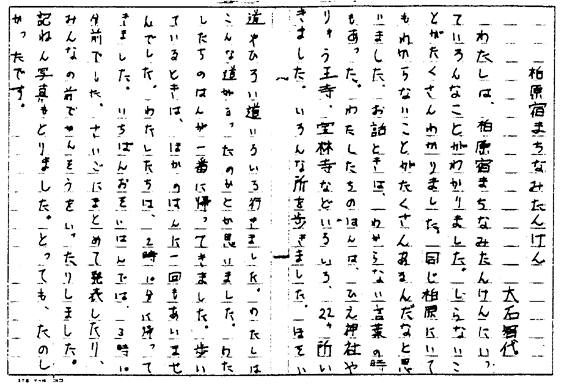 柏原宿まちなみたんけん
大石
わたしは、柏原宿まちなみたんけんにいっ
ていろんなことがわかりました。しらないこ
とがたくさんわかりました。同じ柏原にいて
もわからないことがたくさんあるんだなと思
いました。お話ときは、わからない言葉の時
もあった。わたしたちのはんは、ひえ神社や
りゅう王寺、宝林寺などいろいろ、22ヶ所い
きました。いろんな所を歩きました。ほそい
道やひろい道いろいろ行きました。わたしは
こんな道があったのかとか思いました。わた
したちのはんが一番に帰ってきました。歩い
ているときは、ほかのはんに一回もあいませ
んでした。わたしたちは、2時10分に帰って
きました。いちばんおそいはんでは、3時10
分前でした。さいごにまとめて発表したり、
みんなの前でかんそうをいったりしました。
記ねん写真もとりました。とっても、たのし
かったです。